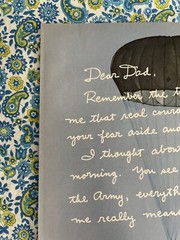 Dear Dad,
Remember the t
me that real coura
your fear aside and
I thought about
morning. You see
the Army, everyth
me really means